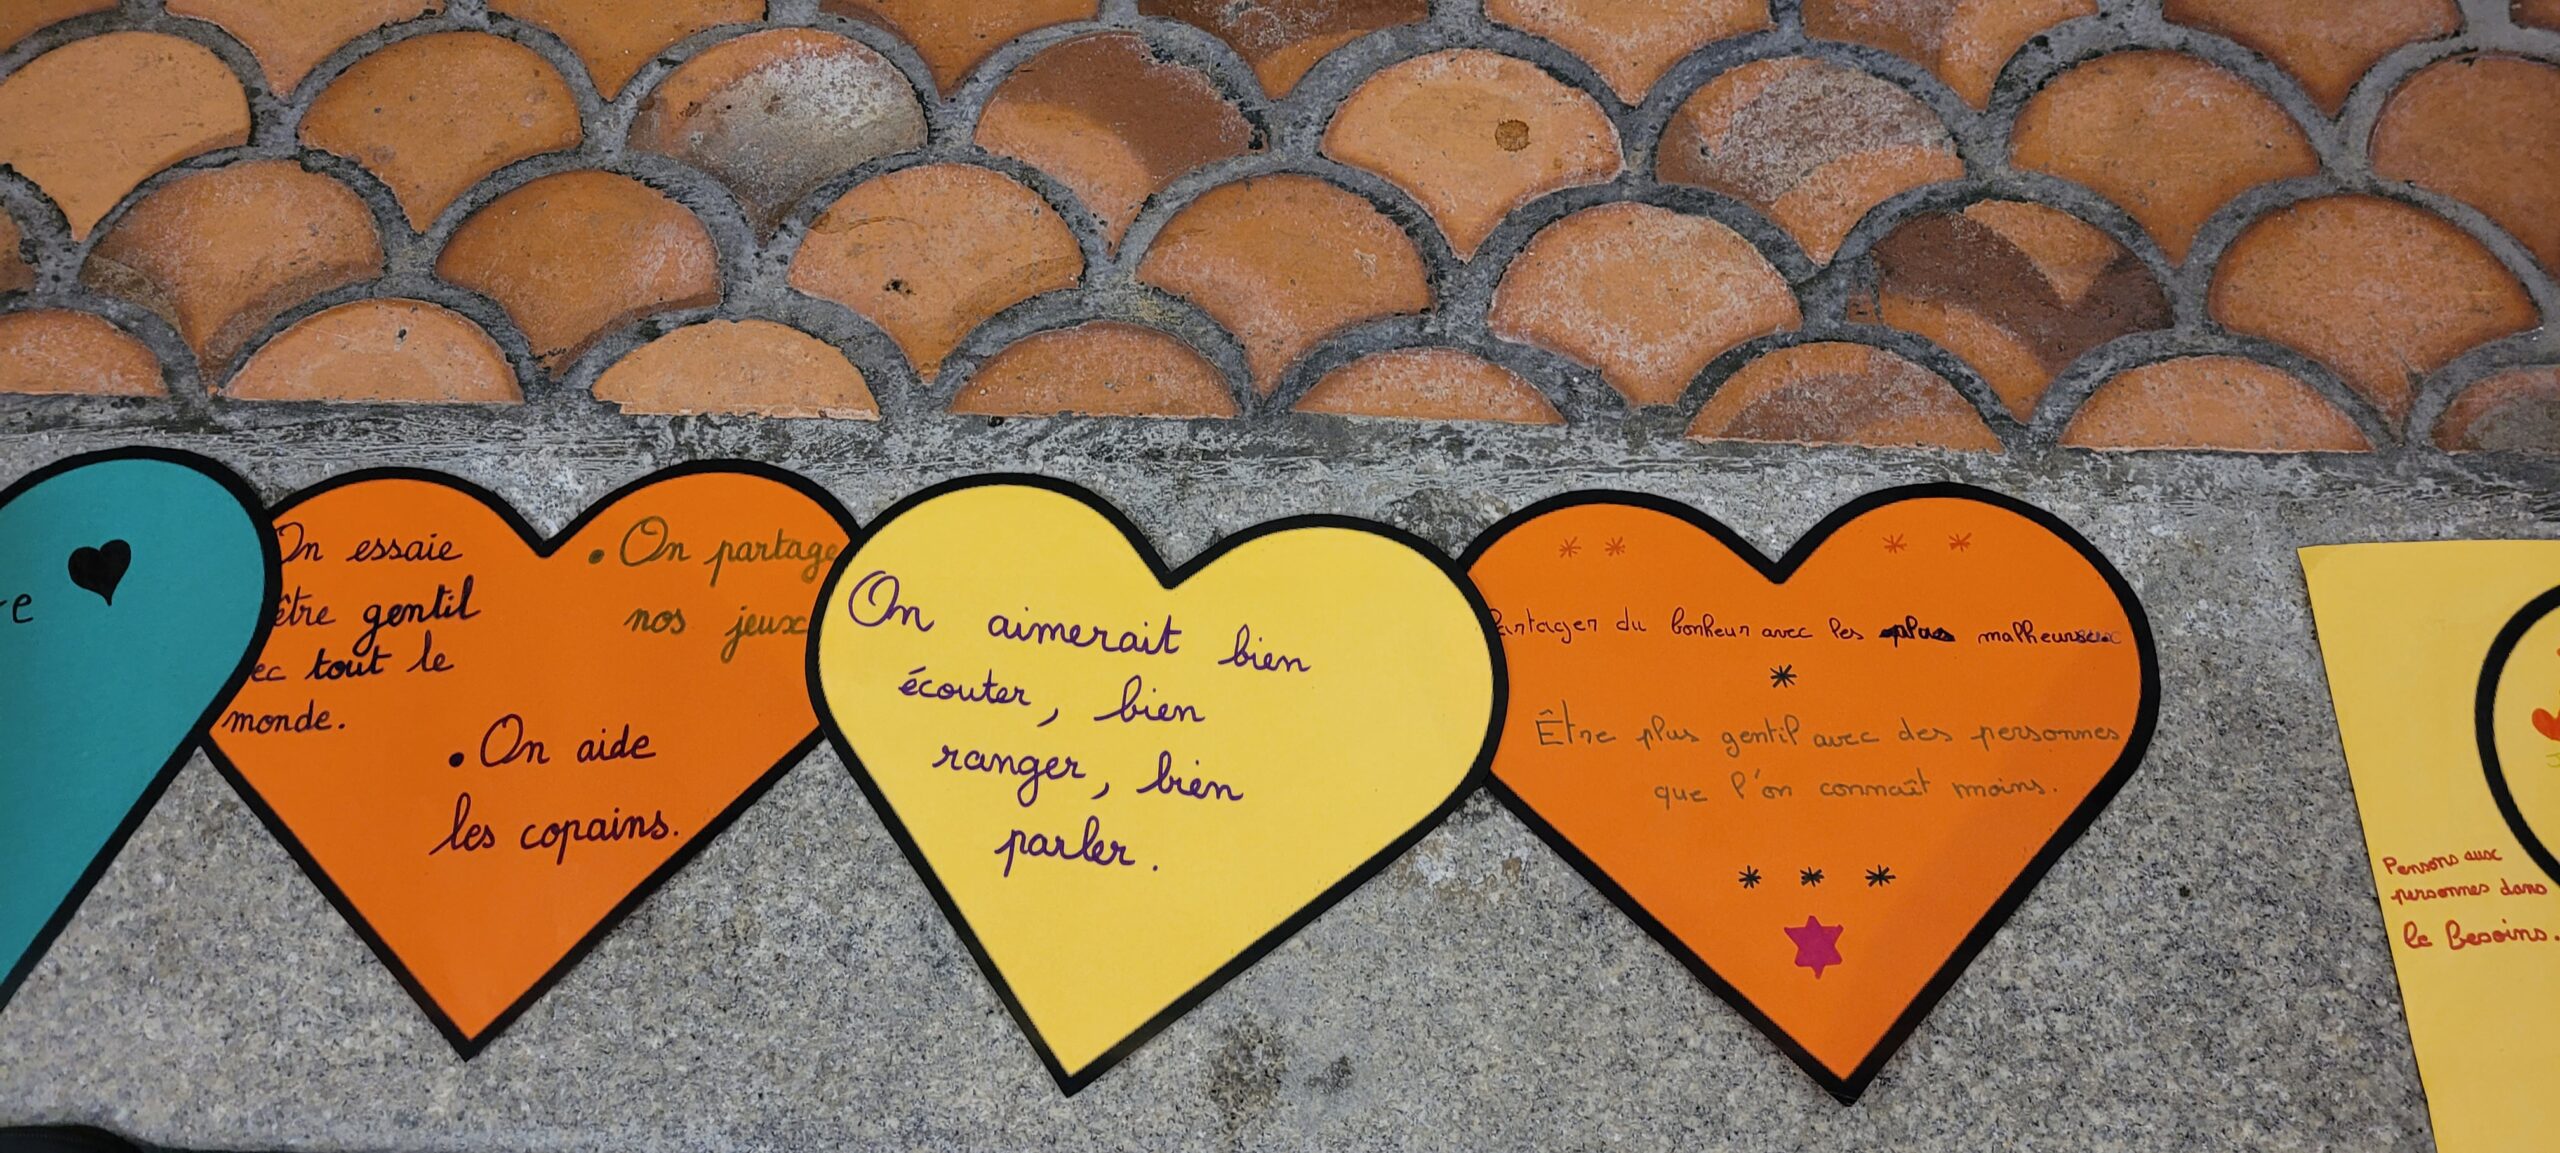 On essaie
être gentil
ec tout le
monde.
• On partage
nos jeux
• On aide
les copains.
On aimerait bien
écouter, bien
ranger, bien
parler.
Partager du bonheur avec les plus malheureux
Être plus gentil avec des personnes
que l'on connaît moins.
Pensons aux
personnes dans
le Besoins.